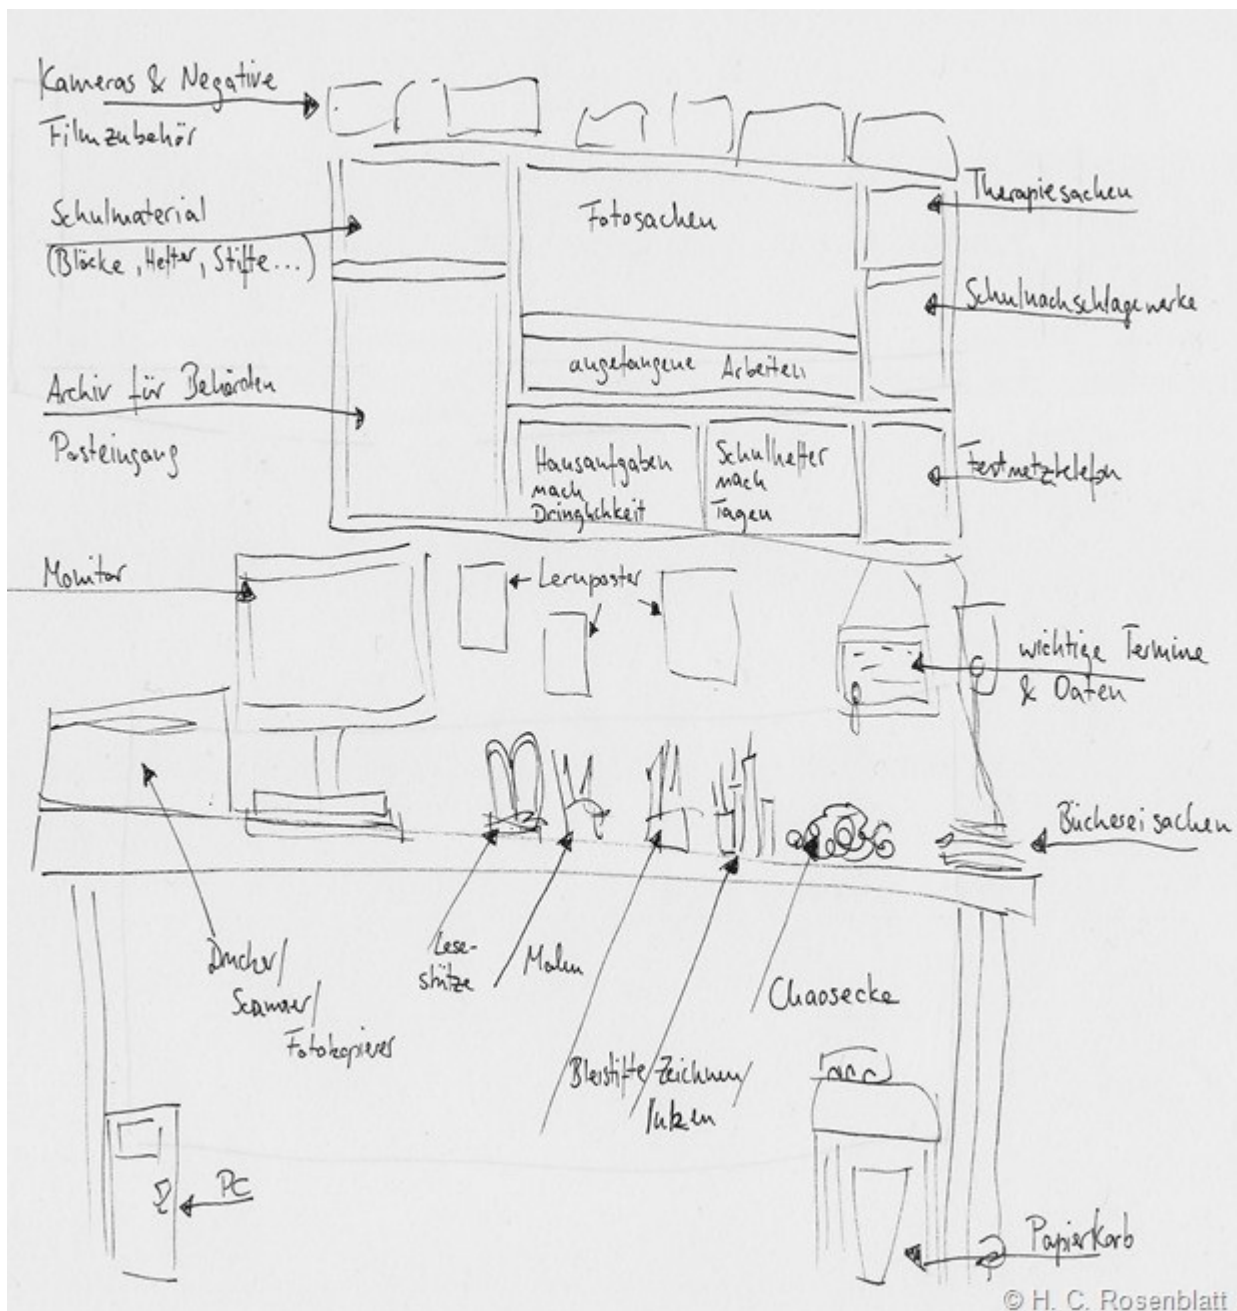 Kameras & Negative
Filmzubehör
Schulmaterial
(Blöcke, Hefter, Stifte...)
Archiv für Behörden
Posteingang
Fotosachen
angefangene Arbeiten
Hausaufgaben
nach
Dringlichkeit
Schulhefter
nach
Tagen
Therapiesachen
Schulnachschlagewerke
Festnetztelefon
Monitor
Lernposter
wichtige Termine
& Daten
Büchereisachen
Drucker/
Scanner/
Fotokopierer
Lese-
stütze
Malen
Bleistifte/Zeichnen/
Chaosecke
PC
Papierkorb
© H. C. Rosenblatt